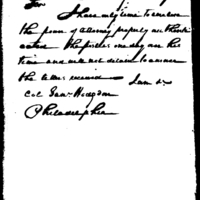 Sir
I have only time to enclose
the power of attorney properly authenti
cated. The post is one day over his
time and will not detain to answer
the letters received I am &c
Col Saml Hodgdon
Philadelphia